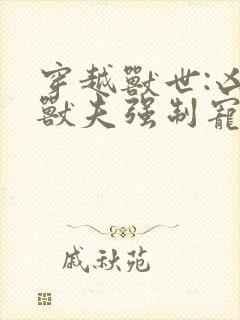 穿越獸世:凶
獸夫强制寵
戚秋苑